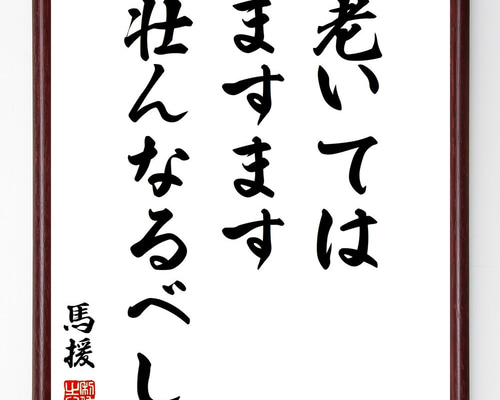 老いては
ますます
壮んなるべし
馬援